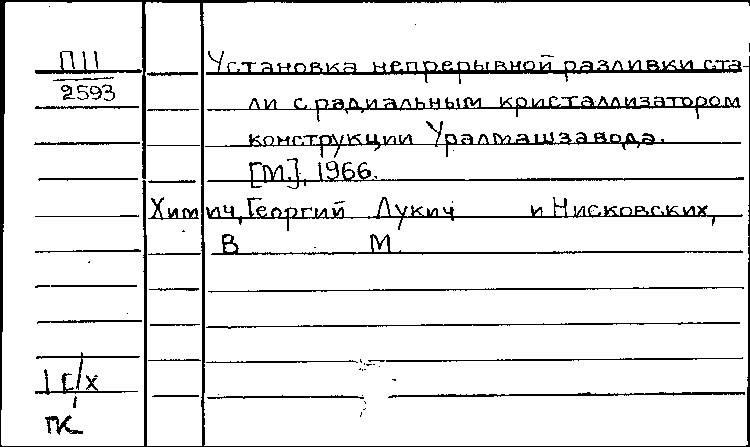 П11
2593
Установка непрерывной разливки ста-
ли с радиальным кристаллизатором
конструкции Уралмашзавода.
[М.], 1966.
Химич, Георгий Лукич и Нисковских,
В М.
1 г/х
ПК